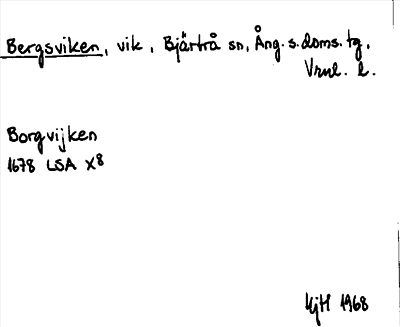 Bergsviken, vik, Bjärtrå sn, Ång. s. doms. tg,
Vrnl. l.
Borgvijken
1678 LSA X8
KjH 1968